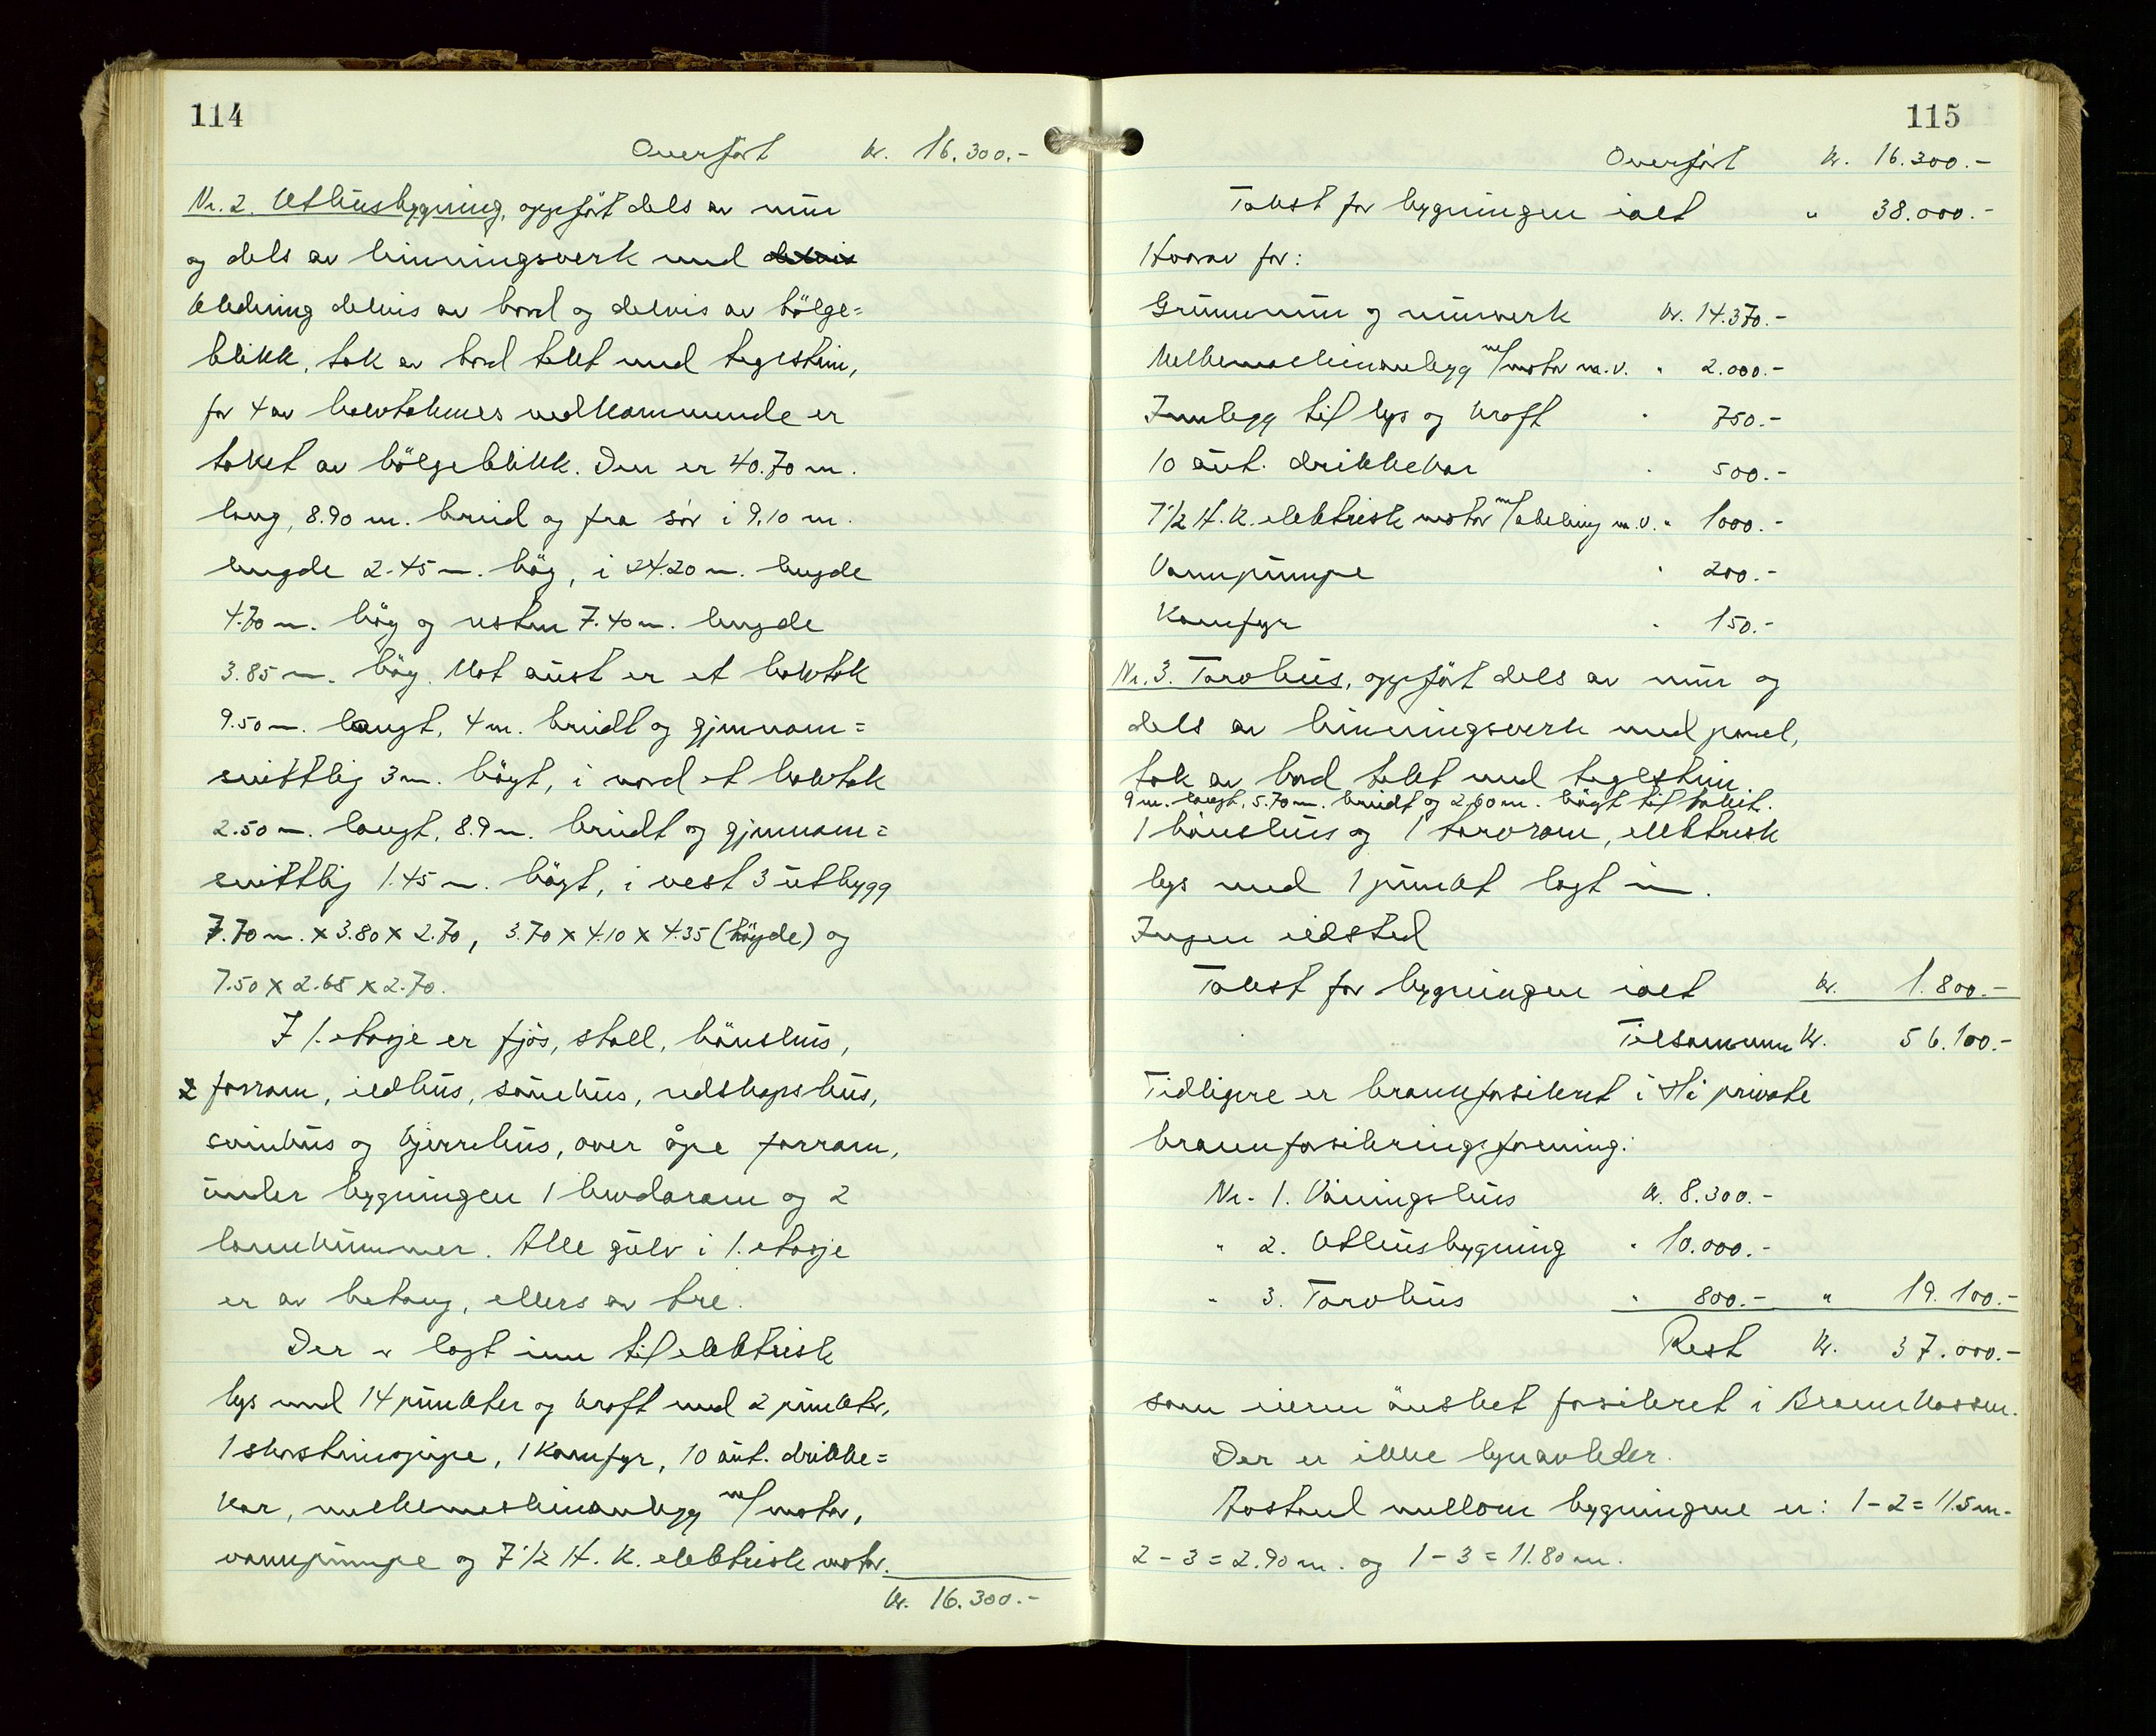 114
Overfört kr. 16.300.-
Nr. 2. Uthusbygning, oppfört dels av mur
og dels av binningsverk med delvis
kledning delvis av bord og delvis av bölge=
blikk, tak av bord tekt med teglstein,
for 4 av halvtakenes vedkommende er
taket av bölgeblikk. Den er 40.70 m.
lang, 8.90 m. breid og fra sör i 9.10 m.
lengde 2.45 m. høg, i 24.20 m. lengde
4.70 m. høg og resten 7.40 m. lengde
3.85 m. høg. Mot aust er et halvtak
9.50 m. langt, 4 m. breidt og gjennom=
snittlig 3 m. högt, i nord et halvtak
2.50 m. langt, 8.9 m. breidt og gjennom=
snittlig 1.45 m. högt, i vest 3 utbygg
7.70 m. x 3.80 x 2.70, 3.70 x 4.10 x 4.35 (høyde) og
7.50 x 2.65 x 2.70.
I 1. etasje er fjös, stall, hönshus,
2 forrom, ildhus, sauehus, redskapshus,
svinhus og kjerrehus, over åpe forrom,
under bygningen 1 landarom og 2
landkummer. Alle gulv i 1. etasje
er av betong, ellers av tre.
Der er lagt inn til elektrisk
lys med 14 punkter og kraft med 2 punkter,
1 skorsteinspipe, 1 komfyr, 10 aut. drikke=
kar, melkemaskinanlegg m/motor,
vannpumpe og 7 1/2 H. K. elektrisk motor.
kr. 16.300.-
115
Overfört kr. 16.300.-
Takst for bygningen ialt " 38.000.-
Hvorav for:
Grunnmur og murverk kr. 14.370.-
Melkemaskinanlegg m/motor m.v. " 2.000.-
Innlegg til lys og kraft " 750.-
10 aut. drikkekar " 500.-
7 1/2 H. K. elektrisk motor m/avdeling m.v. " 1000.-
Vannpumpe " 200.-
Komfyr " 150.-
Nr. 3. Torvhus, oppfört dels av mur og
dels av binningsverk med panel,
tak av bord tekt med teglstein
9 m. langt, 5.70 m. breidt og 2.60 m. högt til taket.
1 hönshus og 1 torvrom, elektrisk
lys med 1 punkt lagt inn.
Ingen ildsted
Takst for bygningen ialt kr. 1.800.-
Tilsammen kr. 56.100.-
Tidligere er brannforsikret i Hå private
brannforsikringsforening:
Nr. 1. Våningshus kr. 8.300.-
" 2. Uthusbygning " 10.000.-
" 3. Torvhus " 800.- " 19.100.-
Rest kr. 37.000.-
som eieren önsket forsikret i Brannkassen.
Der er ikke lynavleder.
Avstand mellom bygningene er: 1 - 2 = 11.5 m.
2 - 3 = 2.90 m. og 1 - 3 = 11.80 m.